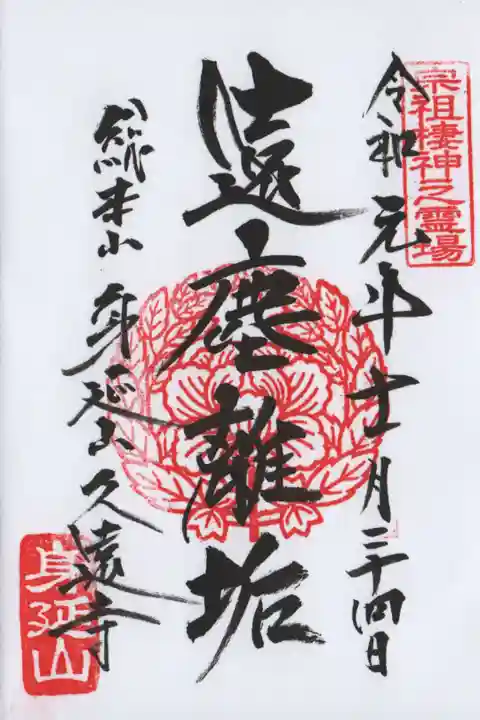 宗祖棲神之霊場
令和元年十一月二十四日
遠塵離垢
総本山 身延山久遠寺
身延山